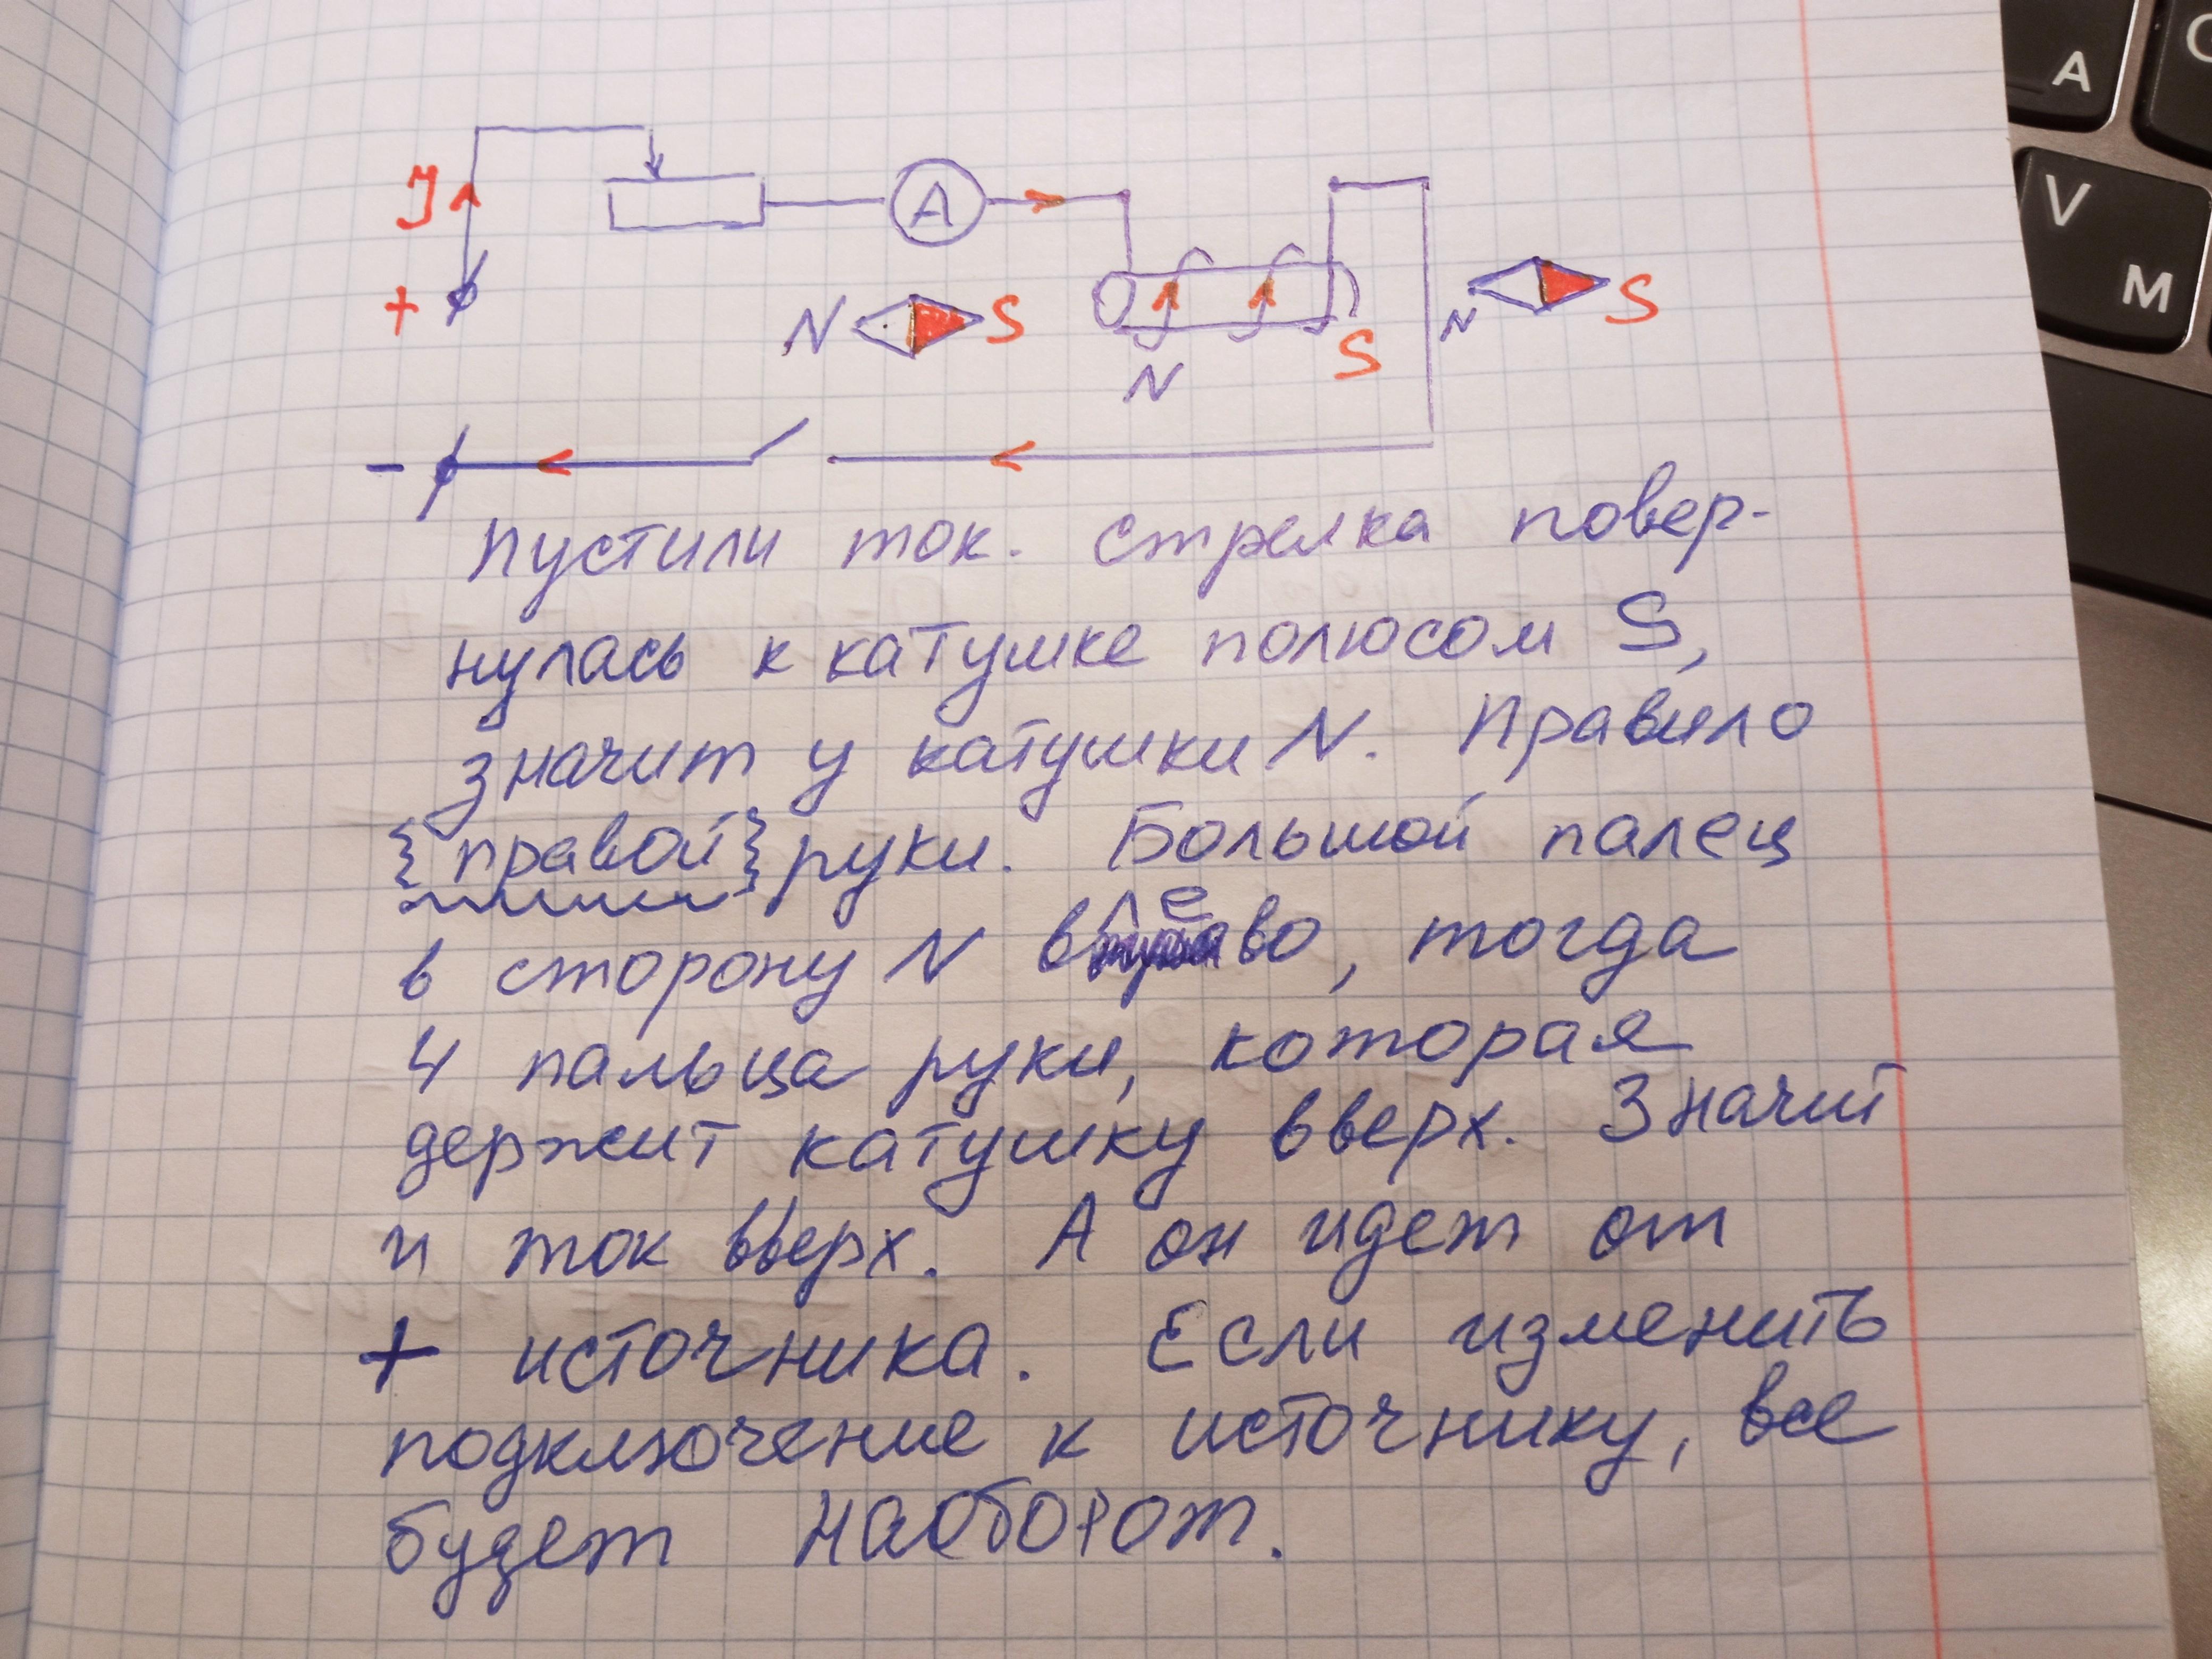 J
+
A
N S
N
S
N S
-
Пустили ток. Стрелка повер-
нулась к катушке полюсом S,
значит у катушки N. Правило
{правой} руки. Большой палец
в сторону N влево, тогда
4 пальца руки, которая
держит катушку вверх. Значит
и ток вверх. А он идет от
+ источника. Если изменить
подключение к источнику, все
будет наоборот.
A
V
M